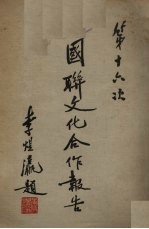 第十六次
國聯文化合作報告
李煜瀛題